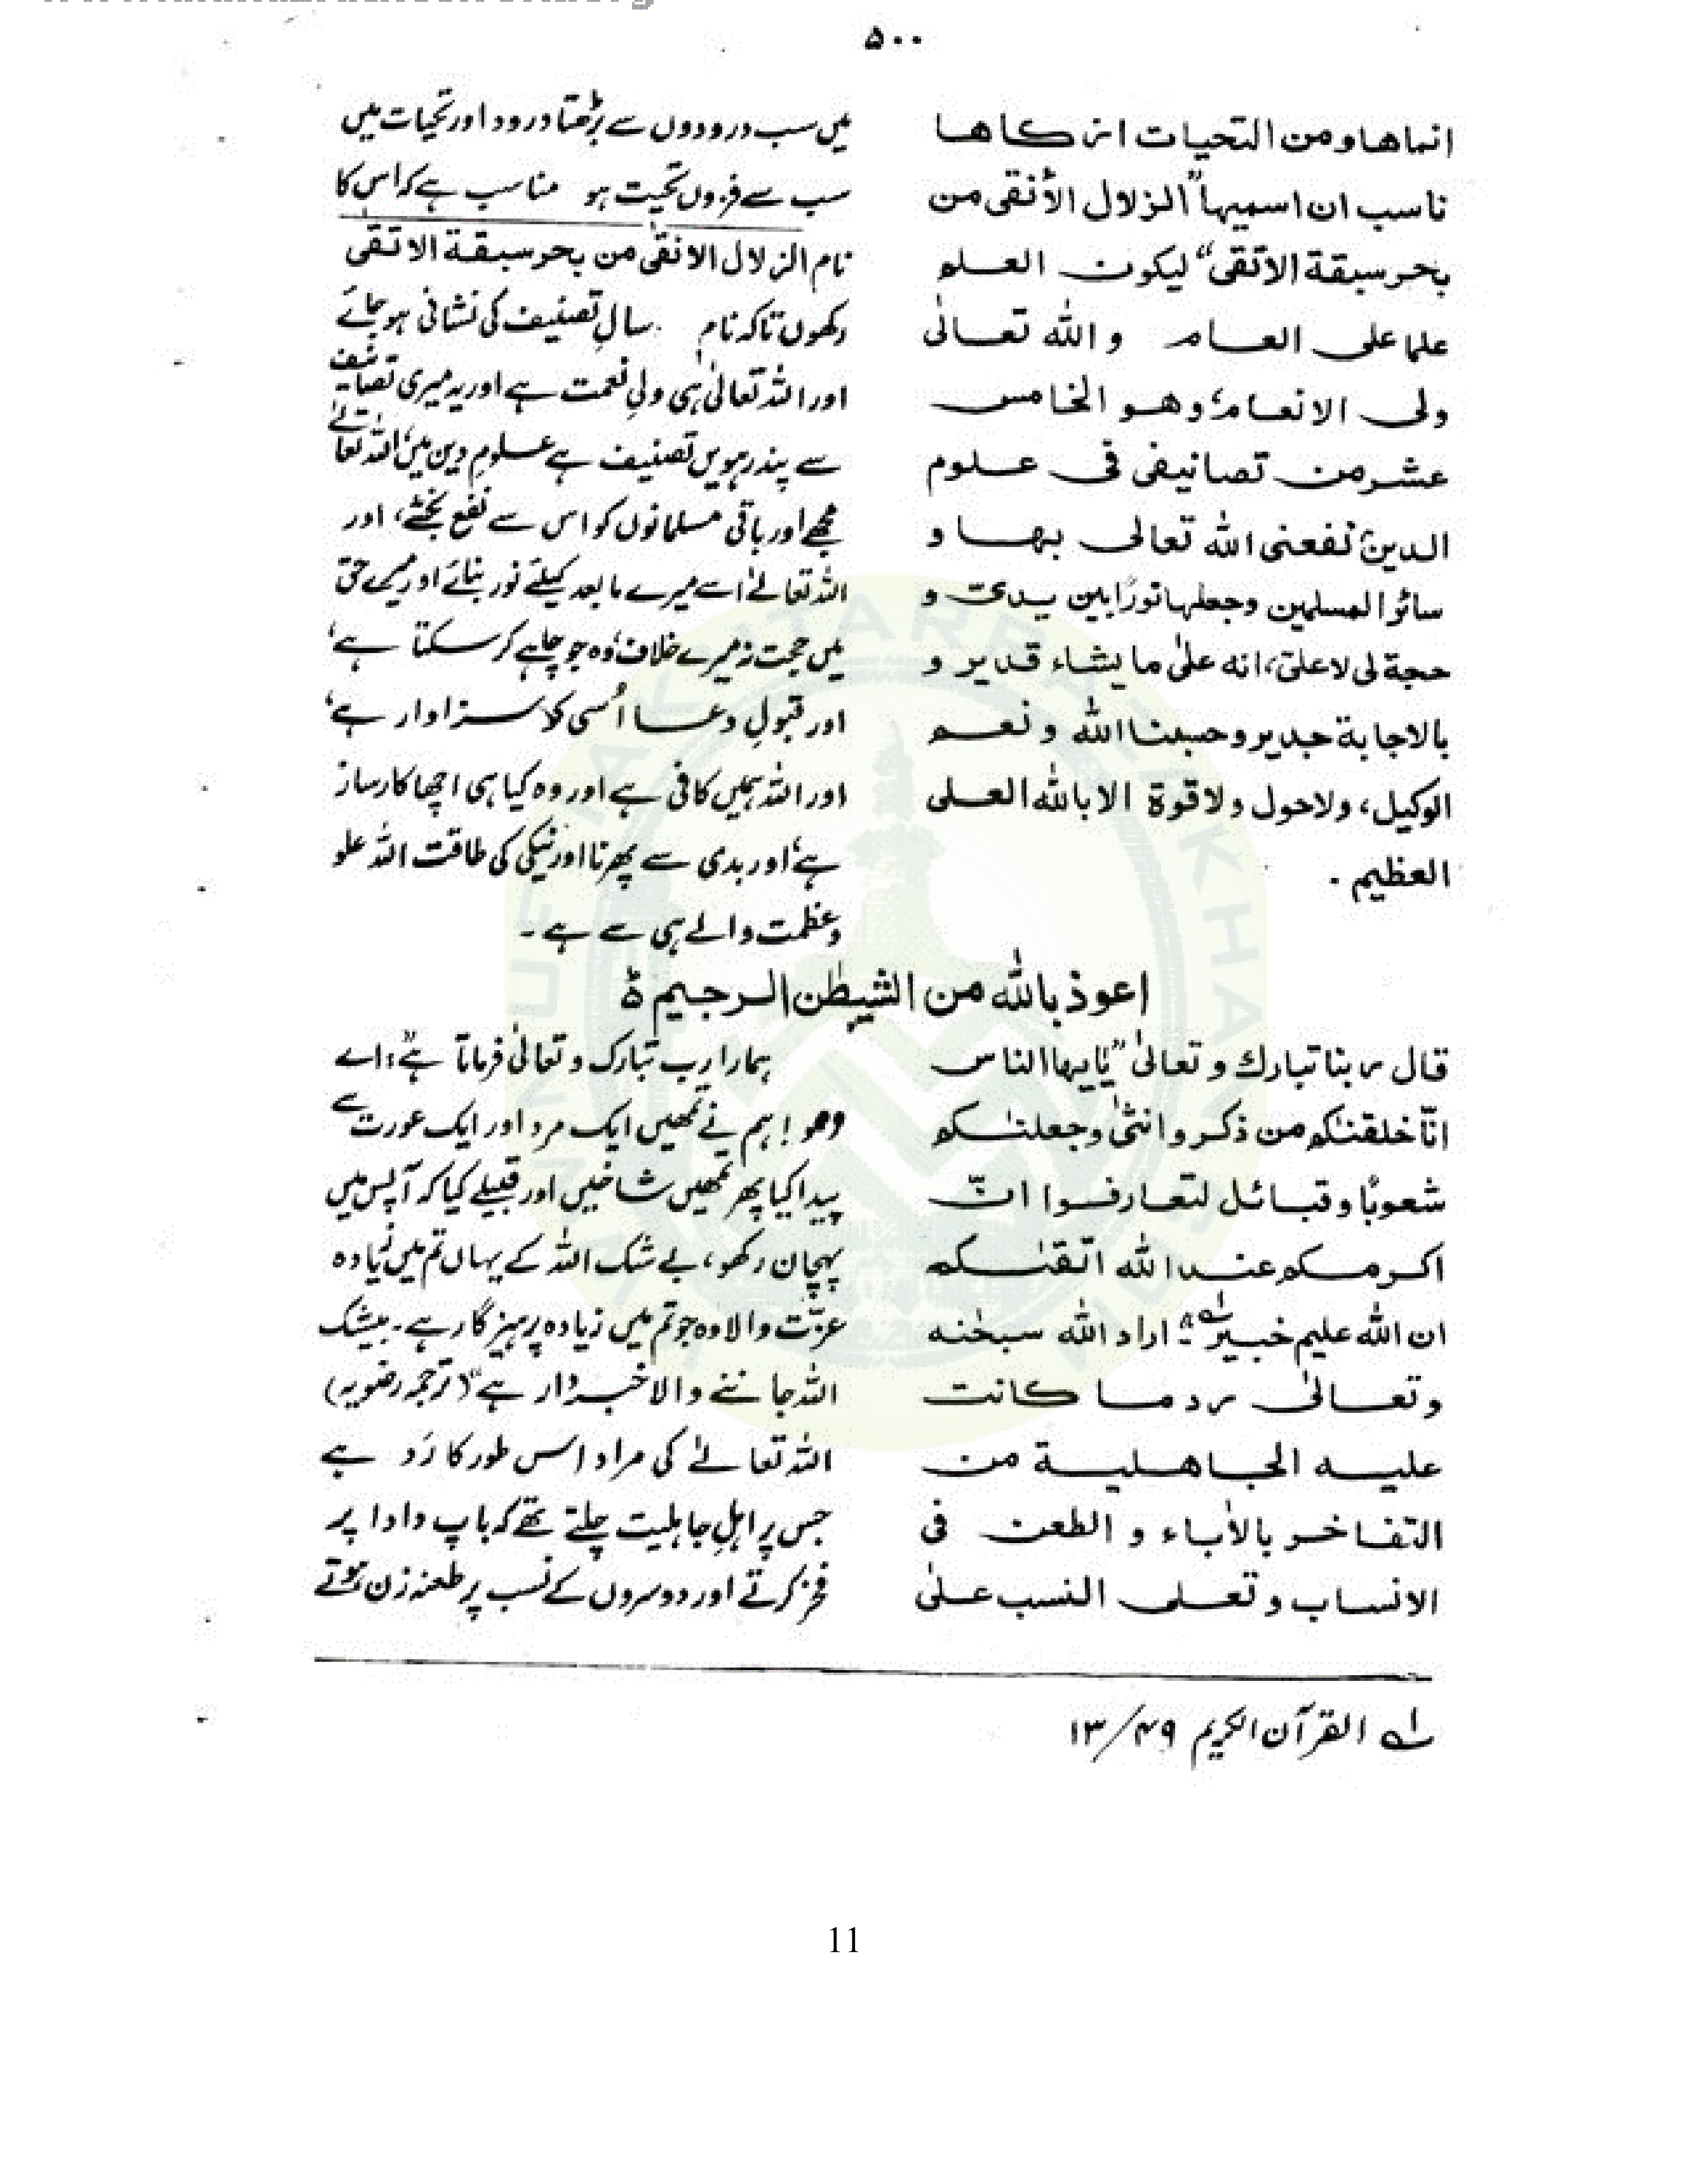 ۵۰۰
انماھا ومن التحیات ازکاھا
ناسب ان اسمیہا "الزلال الأنقی من
بحر سبقة الاتقی" لیکون العلم
علما علی العام واللہ تعالٰی
ولی الانعام، وھو الخامس
عشر من تصانیفی فی علوم
الدین، نفعنی اللہ تعالی بہا و
سائر المسلمین وجعلہا نورًا بین یدیّ و
حجة لی لا علیّ، انہ علیٰ ما یشاء قدیر و
بالاجابة جدیر وحسبنا اللہ ونعم
الوکیل، ولاحول ولا قوة الا باللہ العلی
العظیم۔
میں سب درودوں سے بڑھتا درود اور تحیات میں
سب سے فزوں تحیت ہو مناسب ہے کہ اس کا
نام الزلال الانقیٰ من بحر سبقة الاتقیٰ
رکھوں تاکہ نام سالِ تصنیف کی نشانی ہو جائے
اور اللہ تعالیٰ ہی ولیِ نعمت ہے اور یہ میری تصانیف
سے پندرہویں تصنیف ہے علومِ دین میں، اللہ تعالےٰ
مجھے اور باقی مسلمانوں کو اس سے نفع بخشے، اور
اللہ تعالےٰ اسے میرے مابعد کیلئے نور بنائے اور میرے حق
میں حجت نہ میرے خلاف، وہ جو چاہے کرسکتا ہے،
اور قبولِ دعا اُسی کو سزاوار ہے،
اور اللہ ہمیں کافی ہے اور وہ کیا ہی اچھا کارساز
ہے، اور بدی سے پھرنا اور نیکی کی طاقت اللہ علو
وعظمت والے ہی سے ہے۔
اعوذ باللہ من الشیطٰن الرجیم ۃ
قال ربنا تبارك وتعالیٰ "یٰایہا الناس
انّا خلقنٰکم من ذکر وانثیٰ وجعلنٰکم
شعوبًا وقبائل لتعارفوا انّ
اکرمکم عند اللہ اتقٰکم
ان اللہ علیم خبیر" ۱؎ اراد اللہ سبحٰنہ
وتعالیٰ رد ما کانت
علیہ الجاھلیة من
التفاخر بالاٰباء و الطعن فی
الانساب وتعلی النسب علیٰ
ہمارا رب تبارک وتعالیٰ فرماتا ہے: "اے
لوگو! ہم نے تمھیں ایک مرد اور ایک عورت سے
پیدا کیا پھر تمھیں شاخیں اور قبیلے کیا کہ آپس میں
پہچان رکھو، بے شک اللہ کے یہاں تم میں زیادہ
عزّت والا وہ جو تم میں زیادہ پرہیزگار ہے۔ بیشک
اللہ جاننے والا خبردار ہے" (ترجمہ رضویہ)
اللہ تعالےٰ کی مراد اس طور کا رَد ہے
جس پر اہلِ جاہلیت چلتے تھے کہ باپ دادا پر
فخر کرتے اور دوسروں کے نسب پر طعنہ زن ہوتے
۱؎ القرآن الکریم ۴۹/۱۳
11